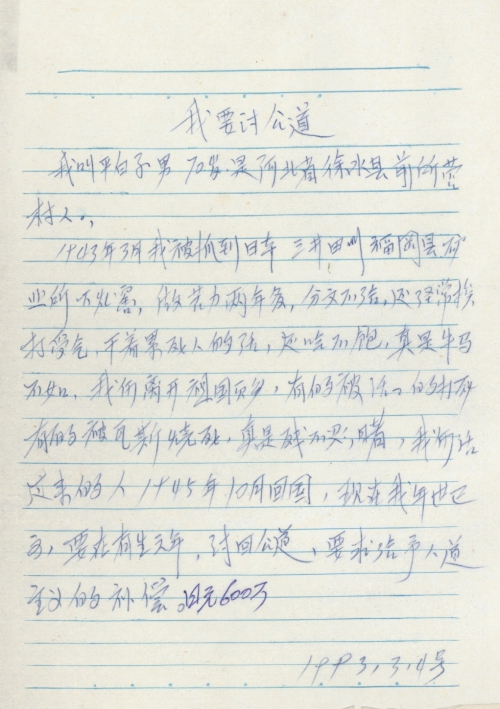 我要讨公道
我叫平白子男 70岁是河北省徐水县前所营
村人。
1943年3月我被抓到日本 三井田川福冈县矿
业所下火窑，做苦力两年多，分文不给，还经常挨
打受气，干着累死人的活，还吃不饱，真是牛马
不如，我们离开祖国贝乡，有的被活々的打死
有的被瓦斯烧死，真是残不忍睹，我们活
过来的人1945年10月回国，现在我年世已
高，要在有生元年，讨回公道，要求给予人道
主义的补偿。日元600万
1993，3，4号